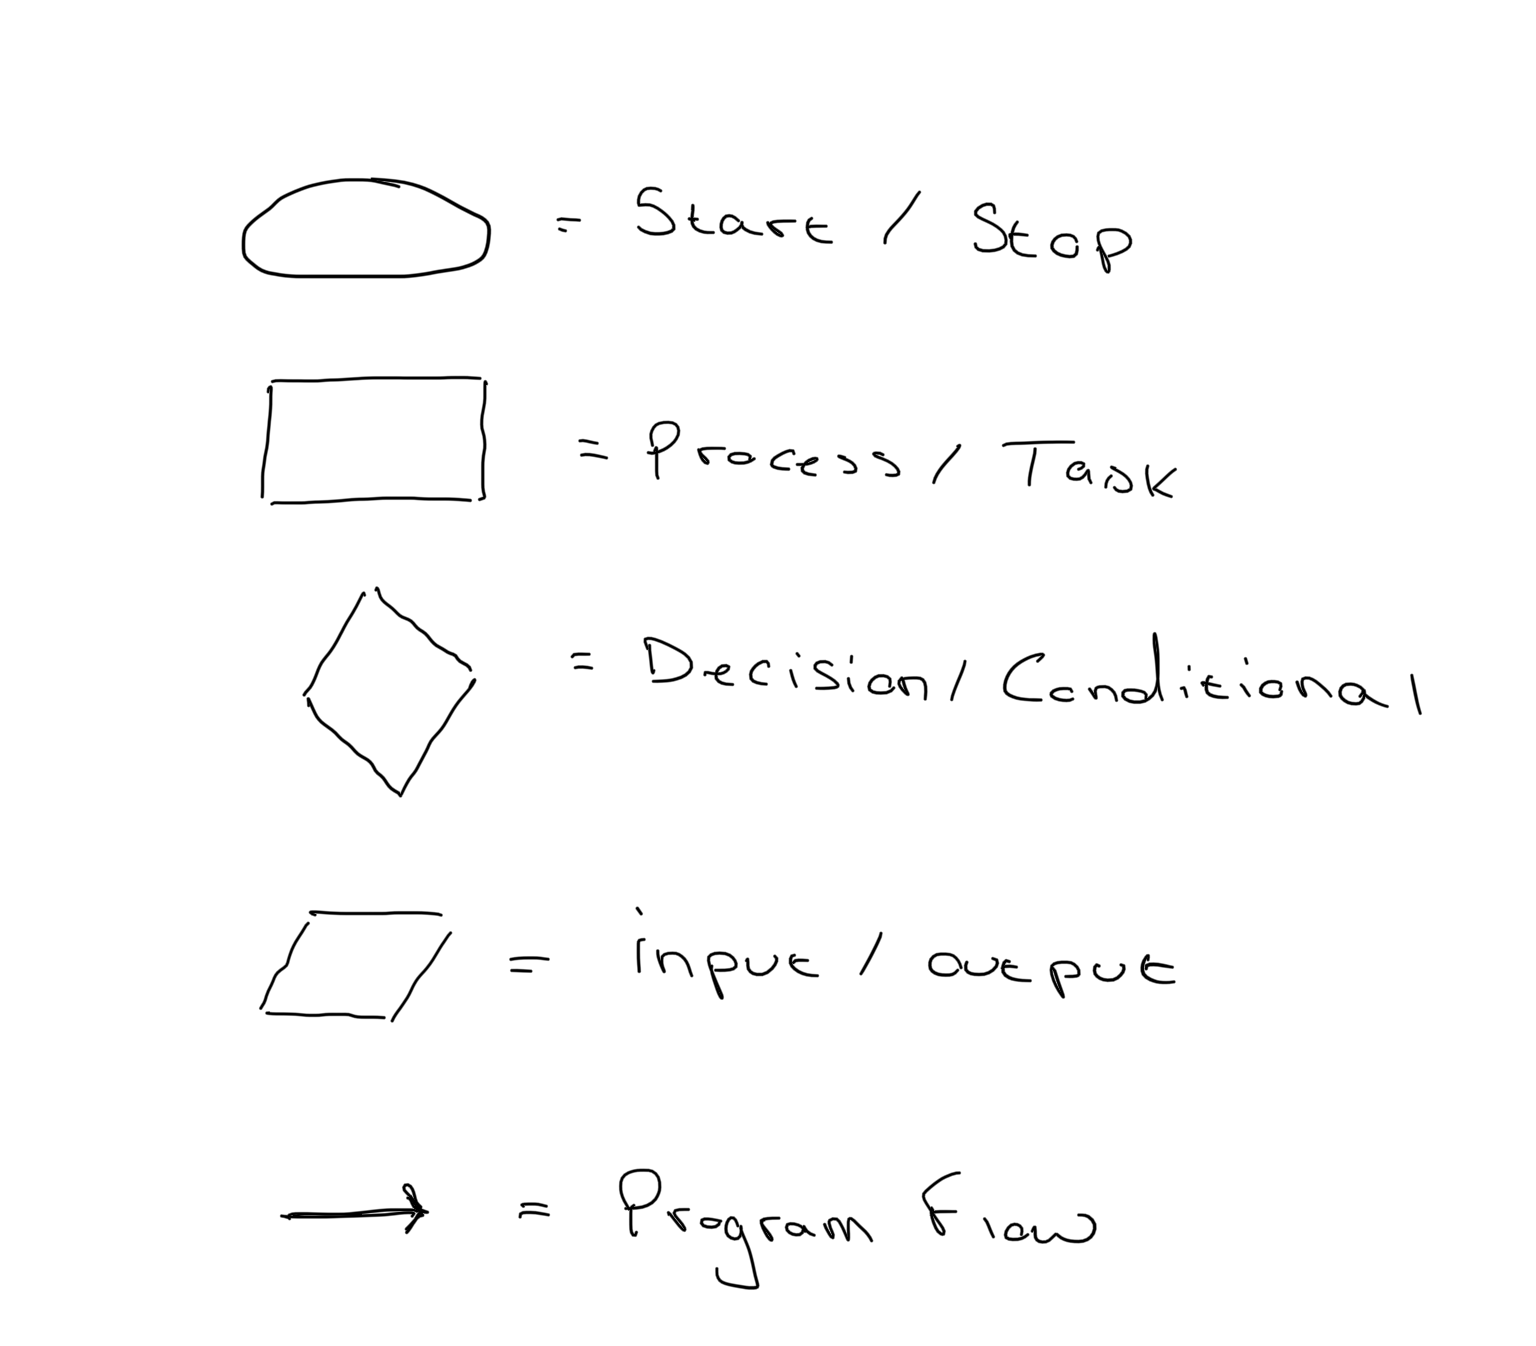 = Start / Stop
= Process / Task
= Decision / Conditional
= input / output
= Program Flow